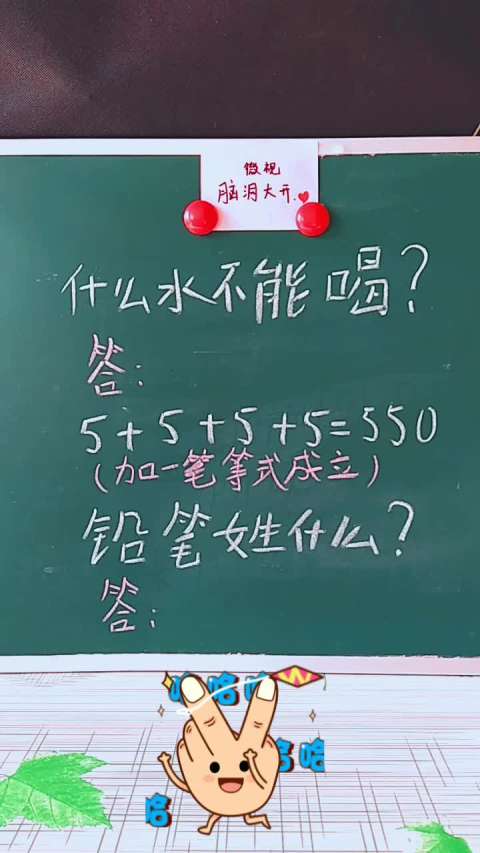 微视
脑洞大开
什么水不能喝？
答：
5+5+5+5=550
（加一笔等式成立）
铅笔姓什么？
答：
哈哈哈
哈哈
哈
W